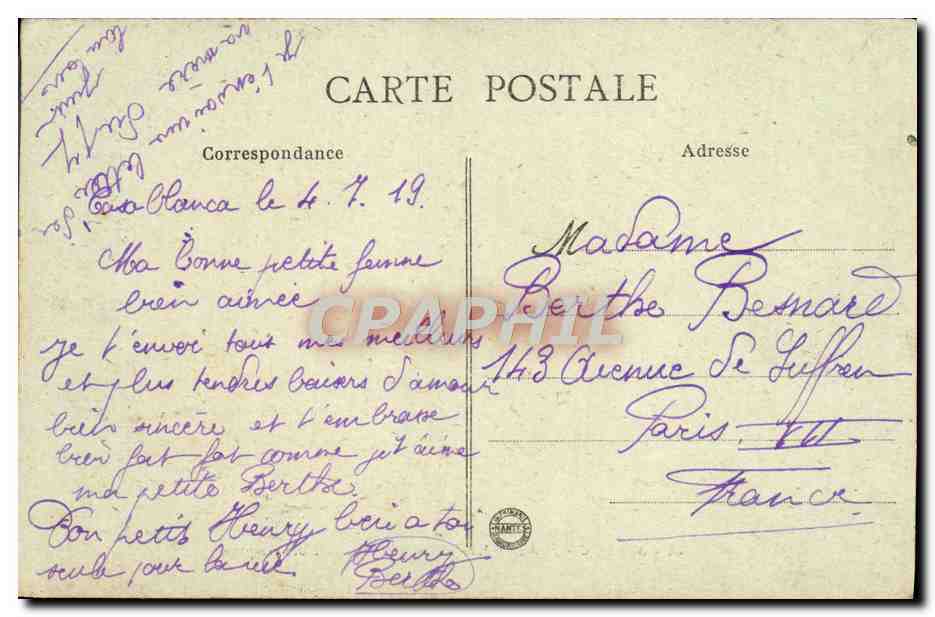 CARTE POSTALE
Correspondance
Adresse
Casablanca le 4.7.19.
Ma Bonne petite femme
bien aimée
je t'envoi tout mes meilleurs
et plus tendres baisers d'amour
bien sincère et t'embrasse
bien fort fort comme je t'aime
ma petite Berthe.
Ton petit Henry bien a toi
seule pour la vie
Henry
Berthe
Madame
Berthe Besnard
143 Avenue de Suffren
Paris VII
France
je t'envoi une lettre
CPAPHIL
IMPRIMERIE
NANTES